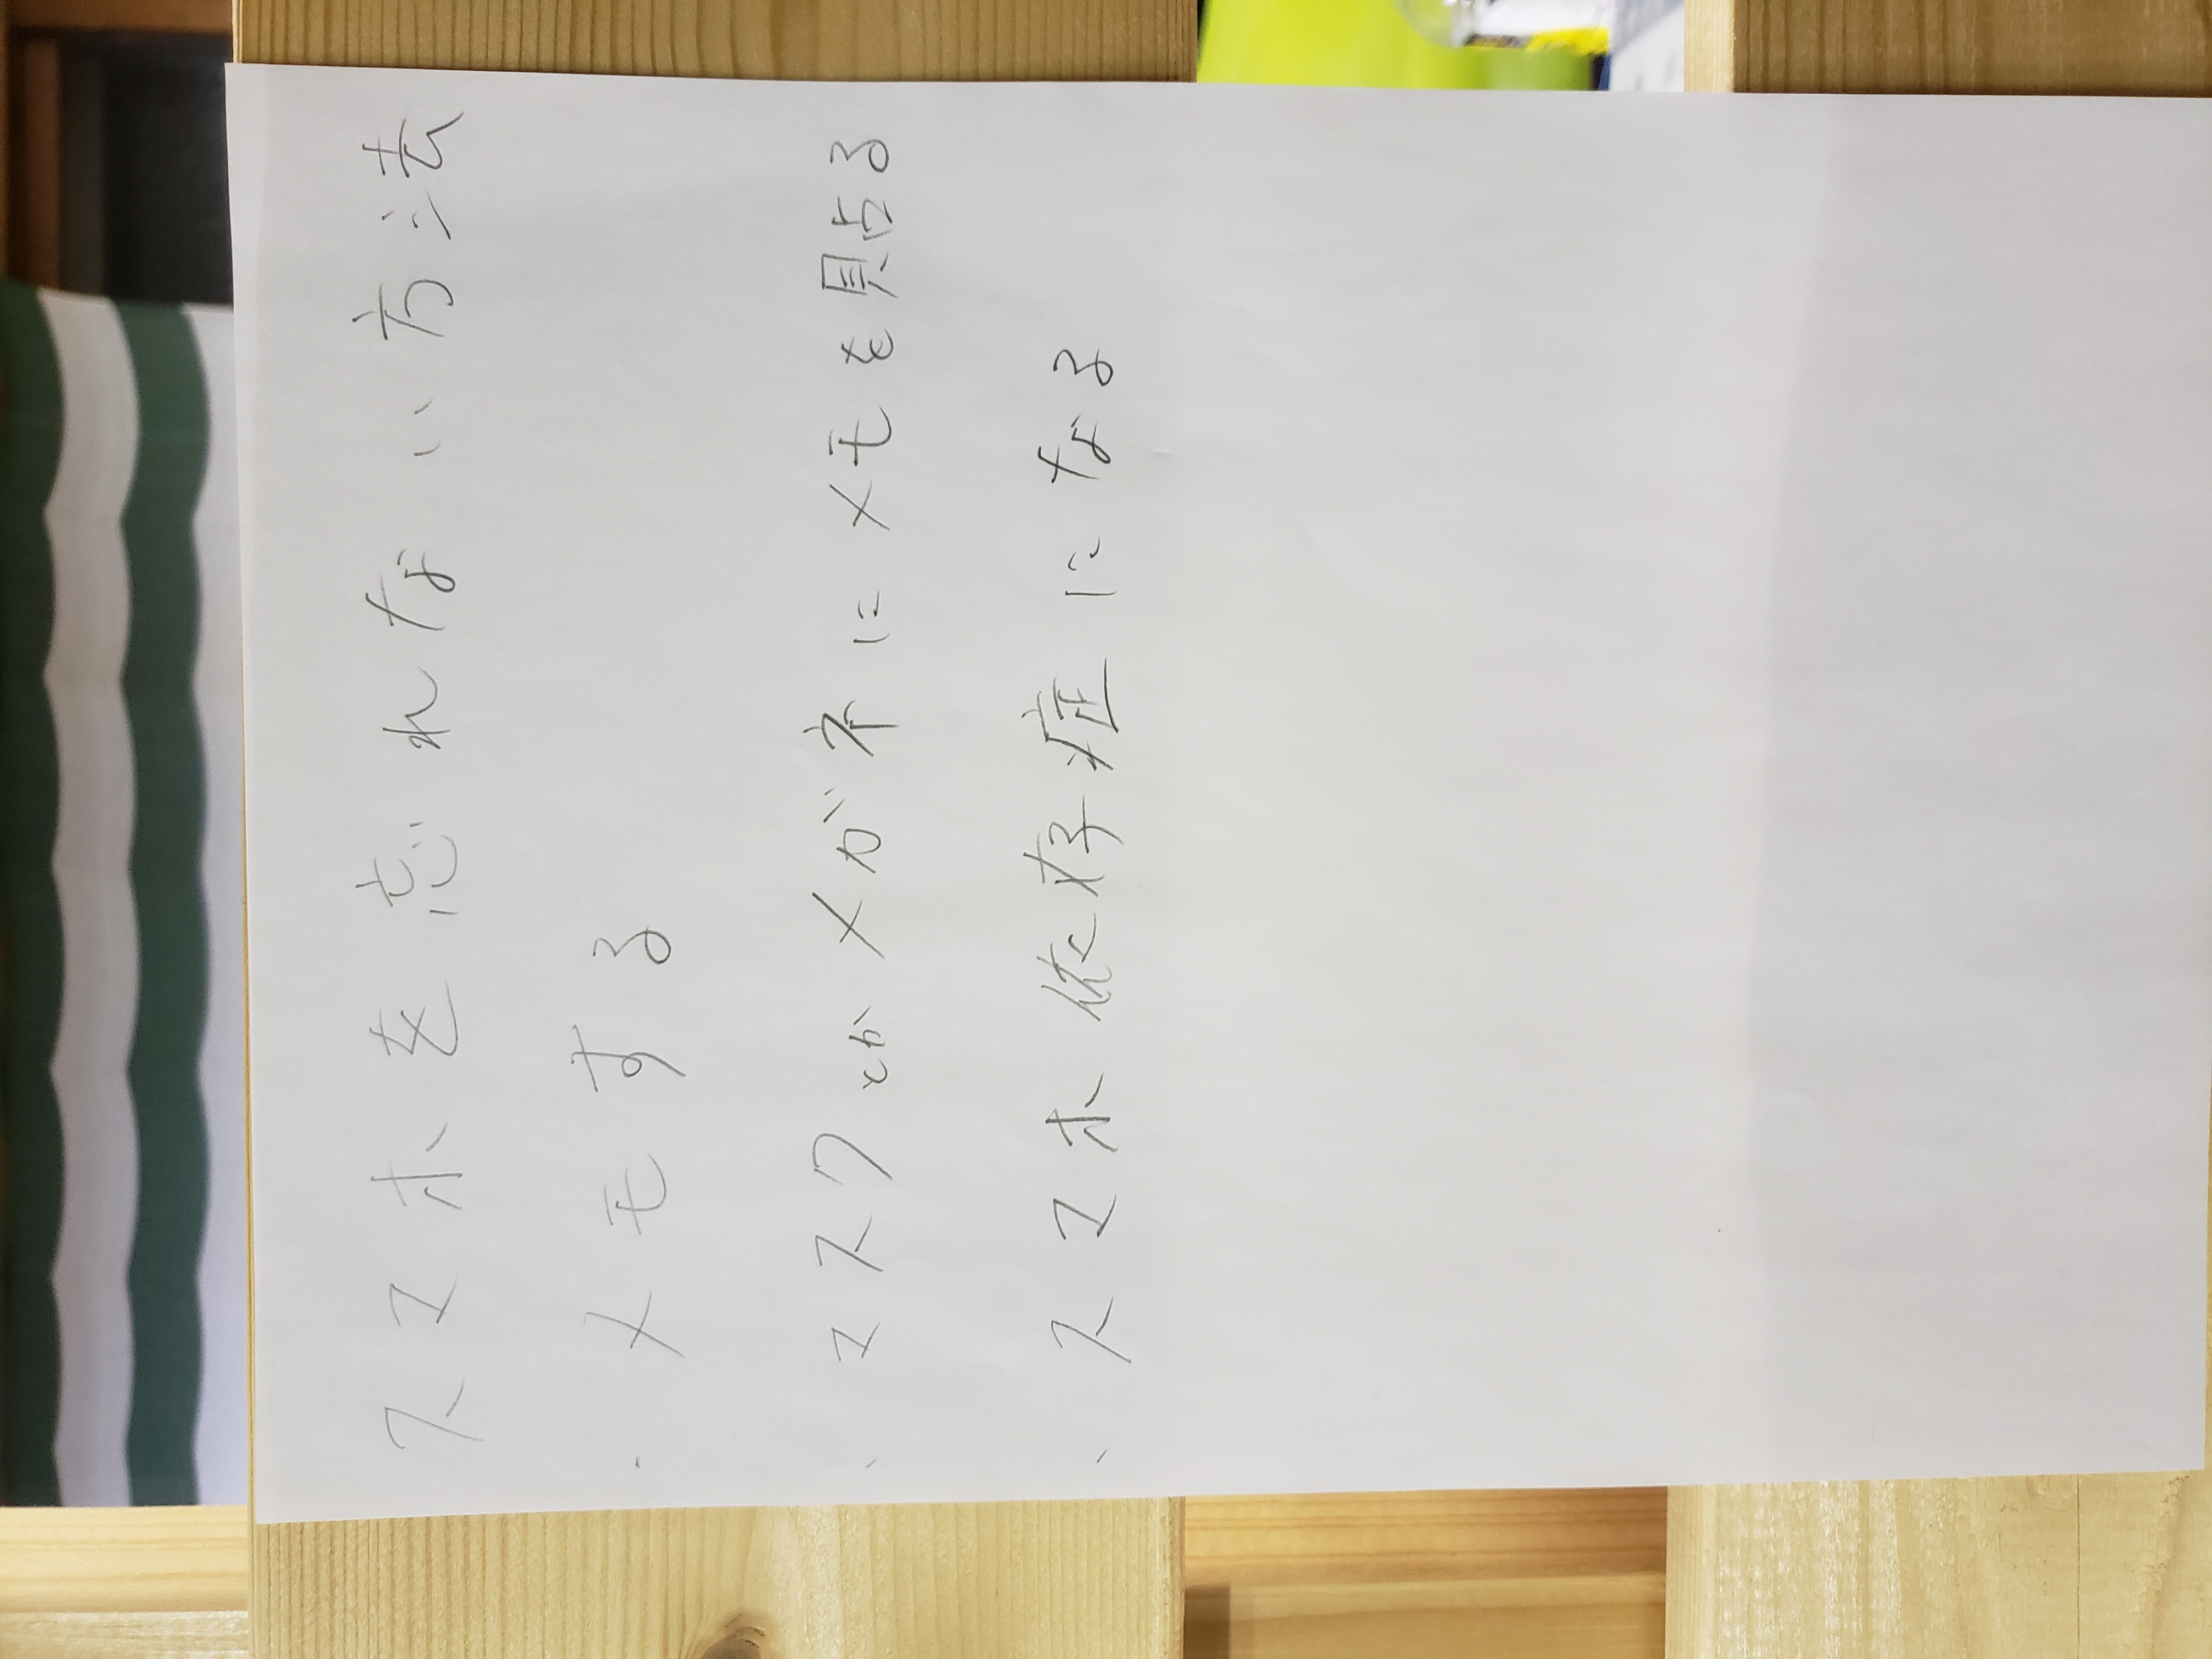 スマホを忘れない方法
・メモする
・マスクとかメガネにメモを貼る
・スマホ依存症になる